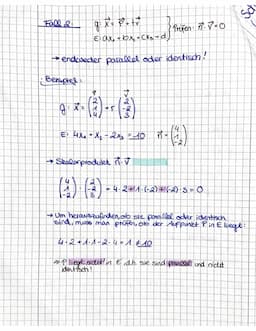 Fall 2:
g: x⃗ = p⃗ + r·v⃗
E: ax₁ + bx₂ + cx₃ = d
} Prüfen: n⃗ · v⃗ = 0
→ entweder parallel oder identisch!
Beispiel:
g: x⃗ = (2 1 4) + r (2 -2 3)
E: 4x₁ + x₂ - 2x₃ = 10 n⃗ = (4 1 -2)
→ Skalarprodukt n⃗ · v⃗
(4 1 -2) · (2 -2 3) = 4·2+1·(-2)+(-2)·3 = 0
→ Um herauszufinden, ob sie parallel oder identisch
sind, muss man prüfen, ob der Aufpunkt P in E liegt:
4·2+1·1-2·4 = 1 ≠ 10
→ P liegt nicht in E d.h. sie sind parallel und nicht
identisch!